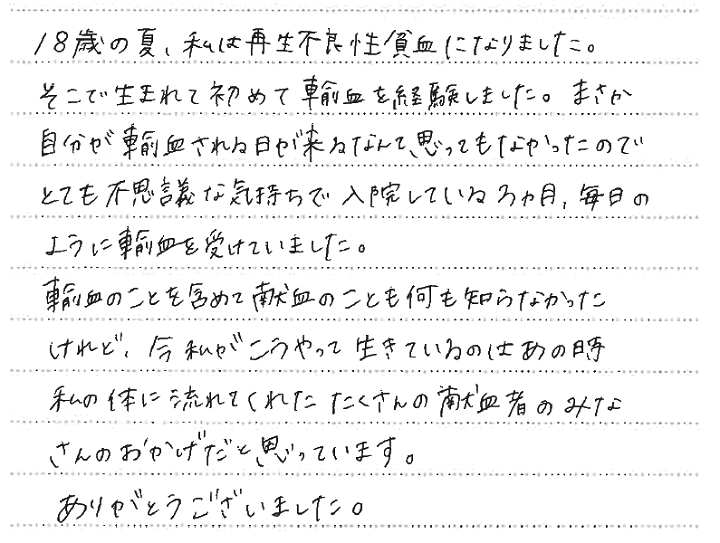 18歳の夏、私は再生不良性貧血になりました。
そこで生まれて初めて輸血を経験しました。まさか
自分が輸血される日が来るなんて思ってもなかったので
とても不思議な気持ちで入院している3ヵ月、毎日の
ように輸血を受けていました。
輸血のことを含めて献血のことも何も知らなかった
けれど、今私がこうやって生きているのはあの時
私の体に流れてくれたたくさんの献血者のみな
さんのおかげだと思っています。
ありがとうございました。